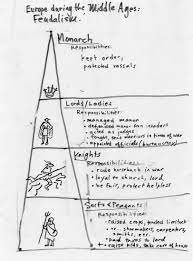 Europe during the Middle Ages:
Feudalism.
Monarch
Responsibilities:
kept order,
protected vassals
Lords/Ladies
Responsibilities:
• managed manor
• acted as judges
• fought, sent warriors in times of war
• appointed officials/bureaucracy
Knights
Responsibilities:
• rode horseback in war
• loyal to church, lord
• be fair, protect helpless
Serfs & Peasants
Responsibilities:
• raised crops, tended livestock
• or shoemakers, carpenters,
smiths, etc.
• paid taxes to lord
• raise kids, take care of home